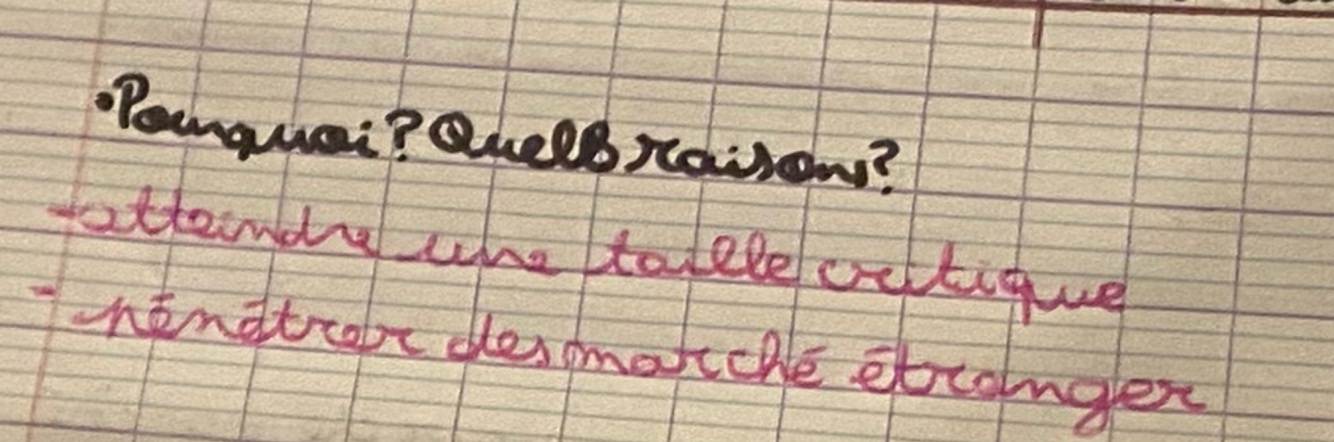 •Pourquoi? Quells raisons?
-atteindre une taille critique
- pénétrer des marché étranger